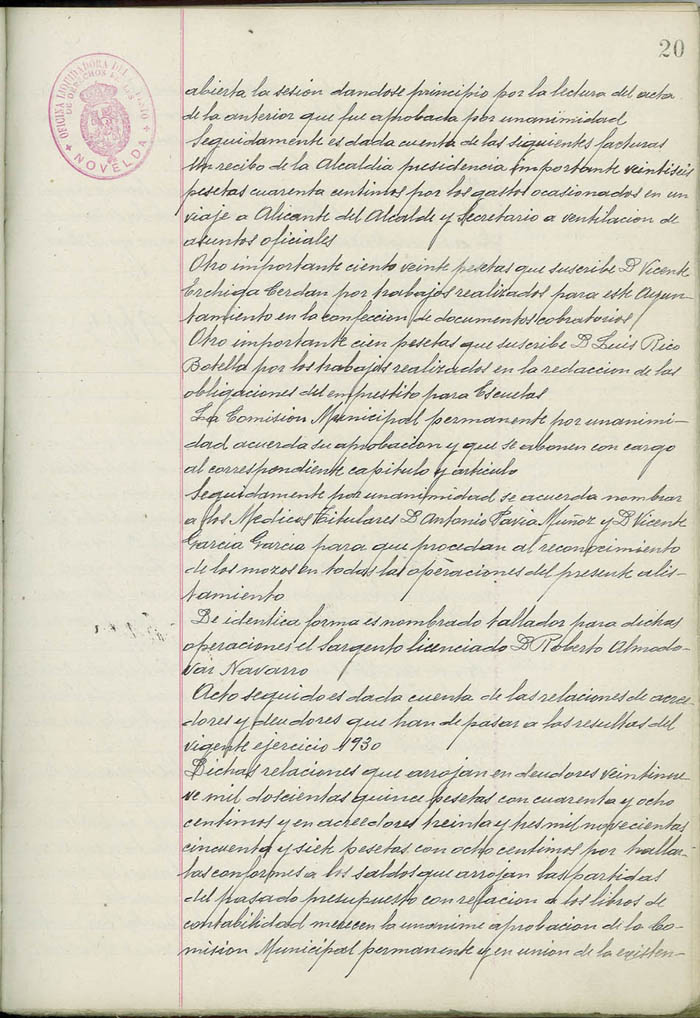 20
OFICINA LIQUIDADORA DEL
DE DERECHOS REALES
NOVELDA
abierta la sesión dandose principio por la lectura del acta
de la anterior que fue aprobada por unanimidad
Seguidamente es dada cuenta de las siguientes facturas
Un recibo de la Alcaldia presidencia importante veintiseis
pesetas cuarenta centimos por los gastos ocasionados en un
viaje a Alicante del Alcalde y Secretario a ventilacion de
asuntos oficiales
Otro importante ciento veinte pesetas que suscribe D Vicente
Cerdan por trabajos realizados para este Ayun-
tamiento en la confeccion de documentos cobratorios
Otro importante cien pesetas que suscribe D Luis Rico
Botella por los trabajos realizados en la redaccion de las
obligaciones del emprestito para Escuelas
La Comision Municipal permanente por unanimi-
dad acuerda su aprobacion y que se abonen con cargo
al correspondiente capitulo y articulo
Seguidamente por unanimidad se acuerda nombrar
a los Medicos Titulares D Antonio Pavia Muñoz y D Vicente
Garcia Garcia para que procedan al reconocimiento
de los mozos en todas las operaciones del presente alis-
tamiento
De identica forma es nombrado tallador para dichas
operaciones el Sargento licenciado D Roberto Almodo-
var Navarro
Acto seguido es dada cuenta de las relaciones de acree-
dores y deudores que han de pasar a las resultas del
vigente ejercicio 1930
Dichas relaciones que arrojan en deudores veintinue-
ve mil doscientas quince pesetas con cuarenta y ocho
centimos y en acreedores treinta y tres mil novecientas
cincuenta y siete pesetas con ocho centimos por hallar-
las conformes a los saldos que arrojan las partidas
del pasado presupuesto con relacion a los libros de
contabilidad merecen la unanime aprobacion de la Co-
mision Municipal permanente y en union de la existen-